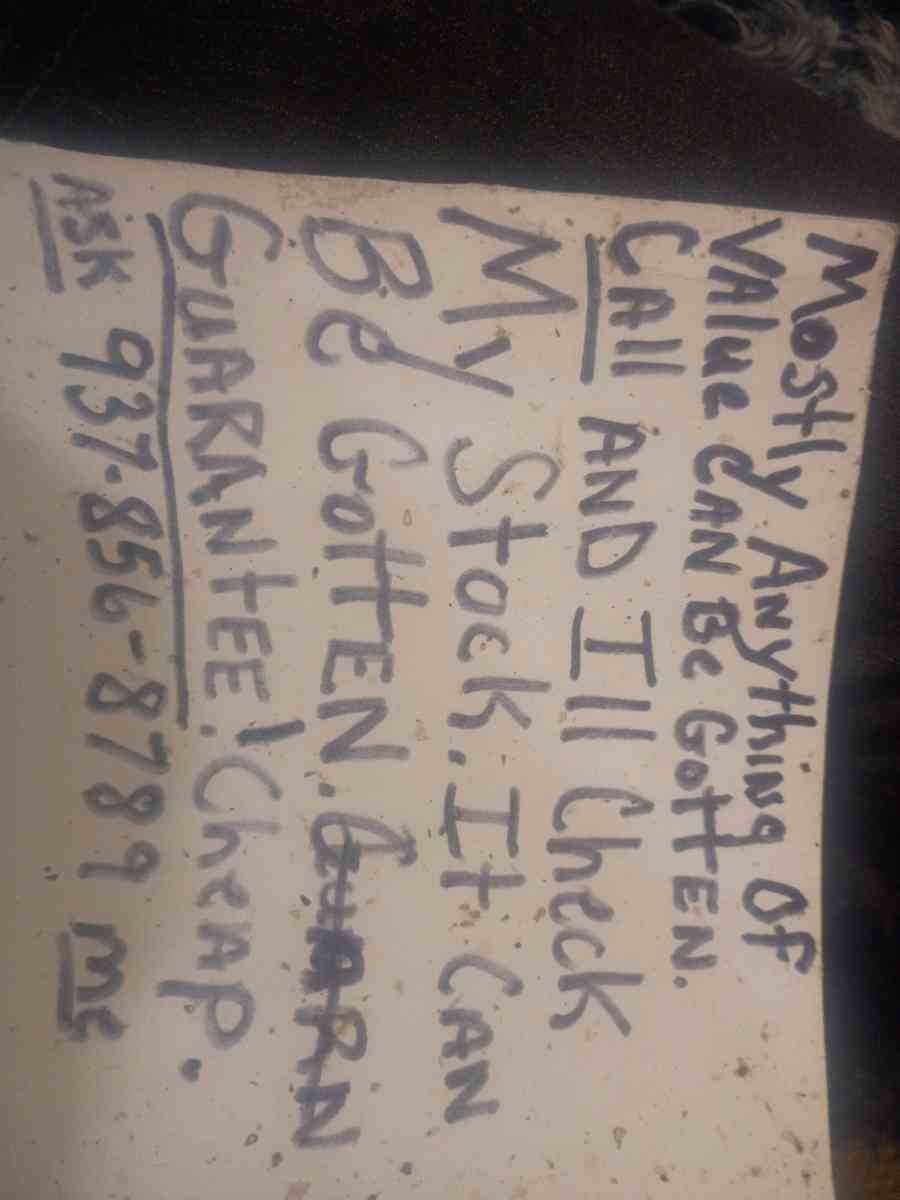 Mostly Anything Of
Value CAN Be GottEN.
CAll AND Ill Check
My Stock. It CAN
Be GottEN. GuARN
GuARANtEE! CheAp.
Ask 937-856-8789 me